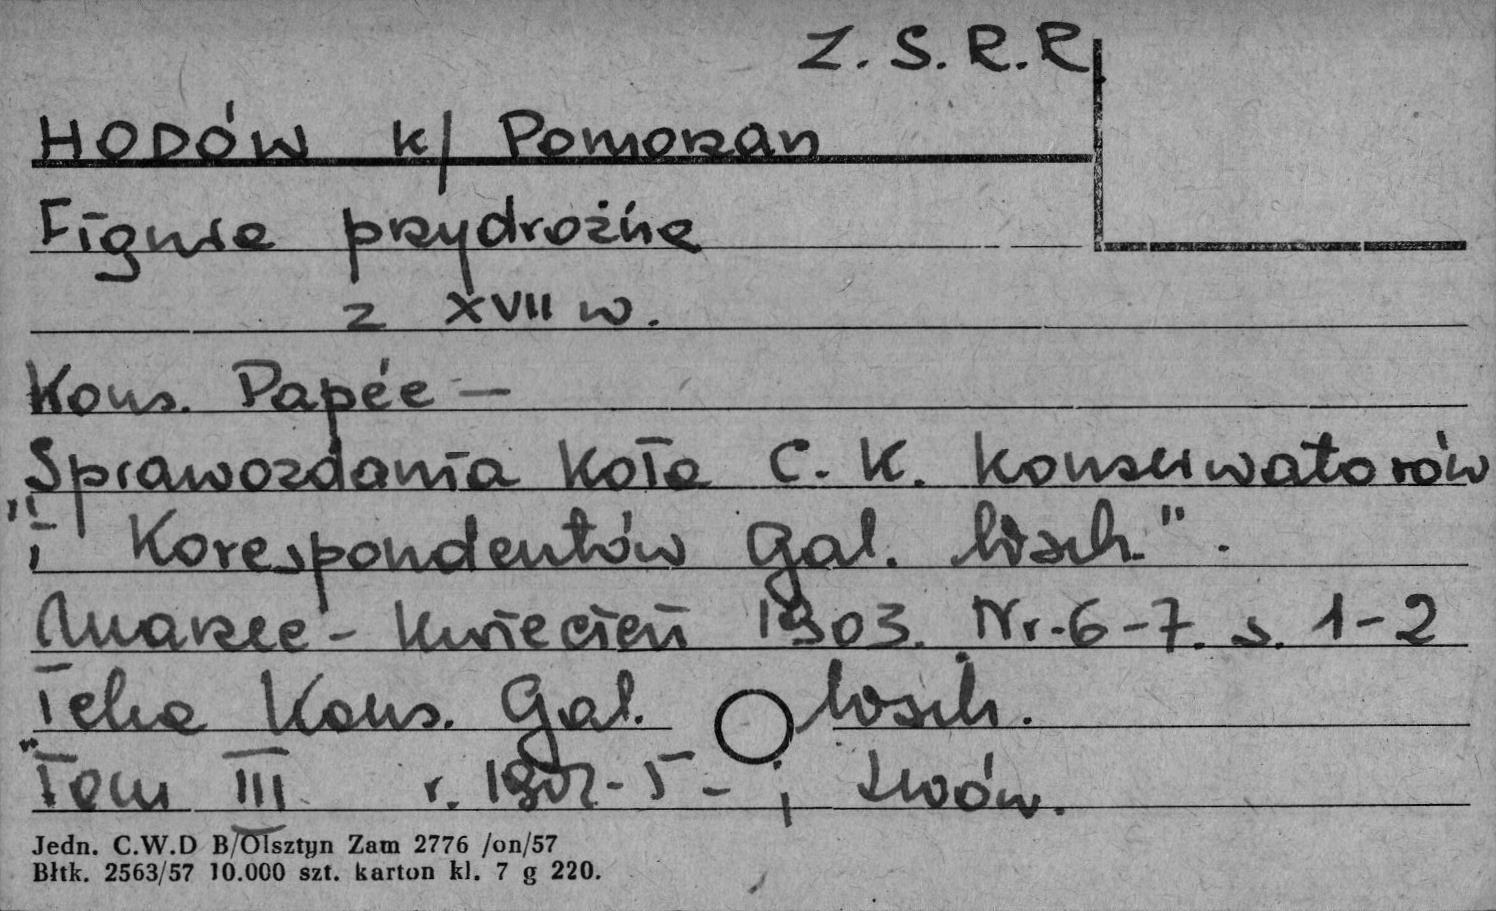 Z. S. R. R.
HODÓW k/ Pomorzan
Figura przydrożna
z XVII w.
Kons. Papée —
"Sprawozdania Koła C. K. Konserwatorów
i Korespondentów Gal. Wsch." .
Marzec - Kwiecień 1903. Nr. 6-7. s. 1-2
"Teka Kons. Gal. Wsch.
Tom III r. 1902-5 - ; Lwów.
Jedn. C.W.D B/Olsztyn Zam 2776 /on/57
Błtk. 2563/57 10.000 szt. karton kl. 7 g 220.